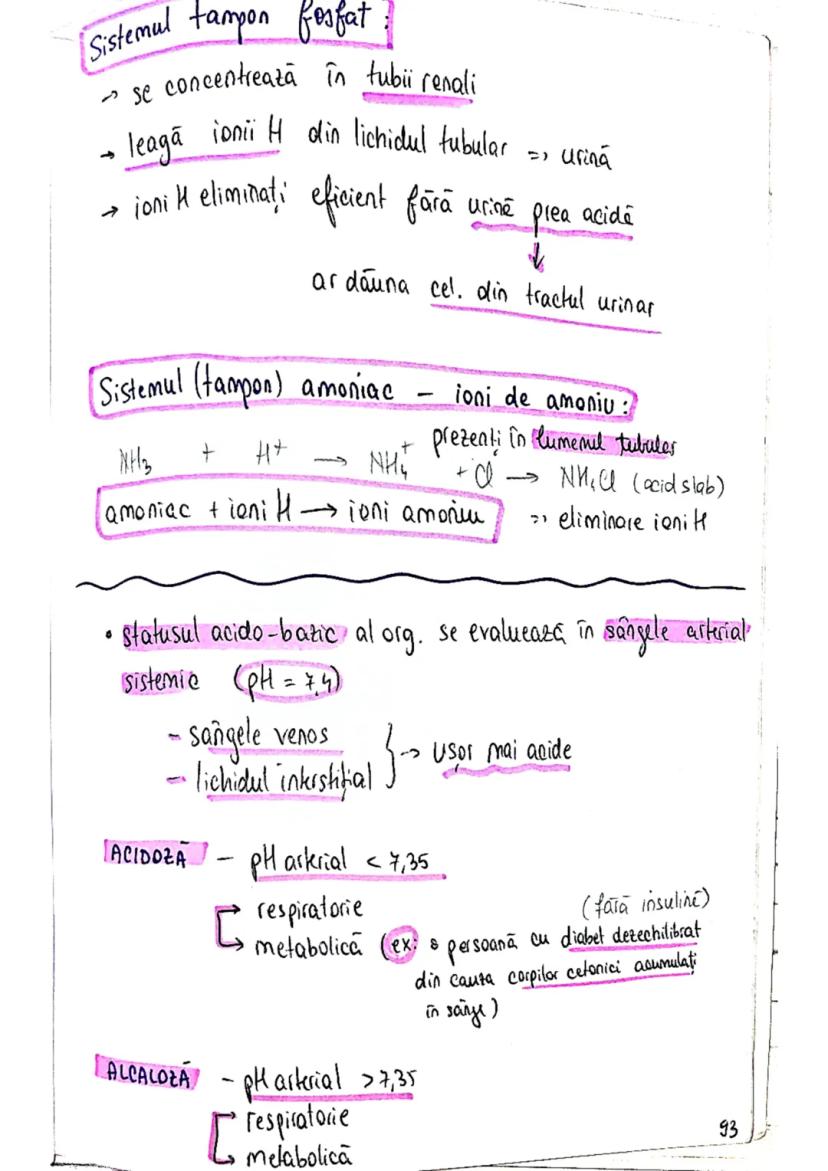 Sistemul tampon fosfat:
→ se concentrează în tubii renali
→ leagă ionii H din lichidul tubular => urină
→ ioni H eliminați eficient fără urină prea acidă
↓
ar dăuna cel. din tractul urinar
Sistemul (tampon) amoniac – ioni de amoniu:
prezenți în lumenul tubular
NH3 + H+ → NH4+ + Cl → NH4Cl (acid slab)
amoniac + ioni H → ioni amoniu => eliminare ioni H
• statusul acido-bazic al org. se evaluează în sângele arterial
sistemic (pH = 7,4)
- sângele venos
- lichidul interstițial } → ușor mai acide
ACIDOZĂ – pH arterial < 7,35
→ respiratorie
(fără insulină)
→ metabolică (ex: o persoană cu diabet dezechilibrat
din cauza corpilor cetonici acumulați
în sânge)
ALCALOZĂ – pH arterial > 7,35
→ respiratorie
→ metabolică
93